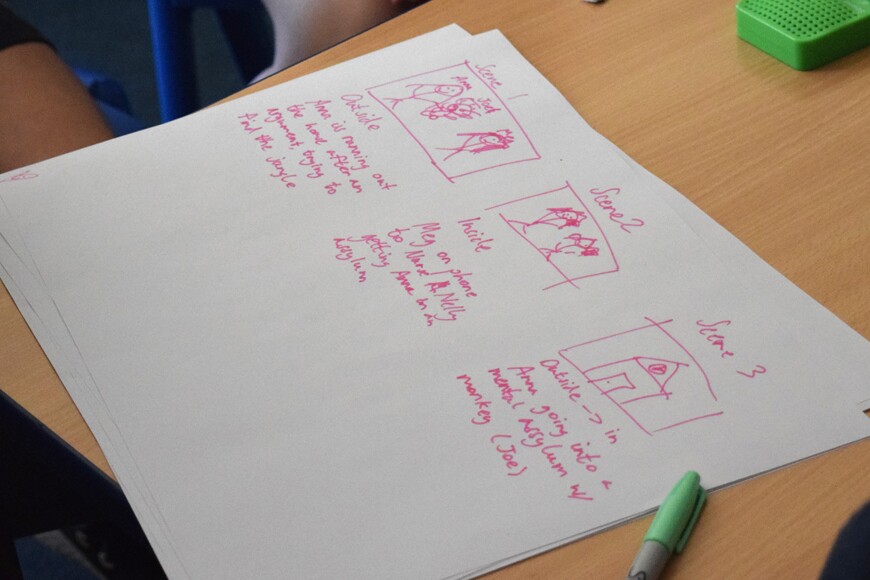 Scene 1
Anna
Outside
Anna is running out
the home after an
argument, trying to
find the jungle
Scene 2
Inside
Meg on phone
to Nurse A. Nelly
getting Anna in an
assylum
Scene 3
Outside -> in
Anna going into a
mental assylum w/
monkey (Joe)